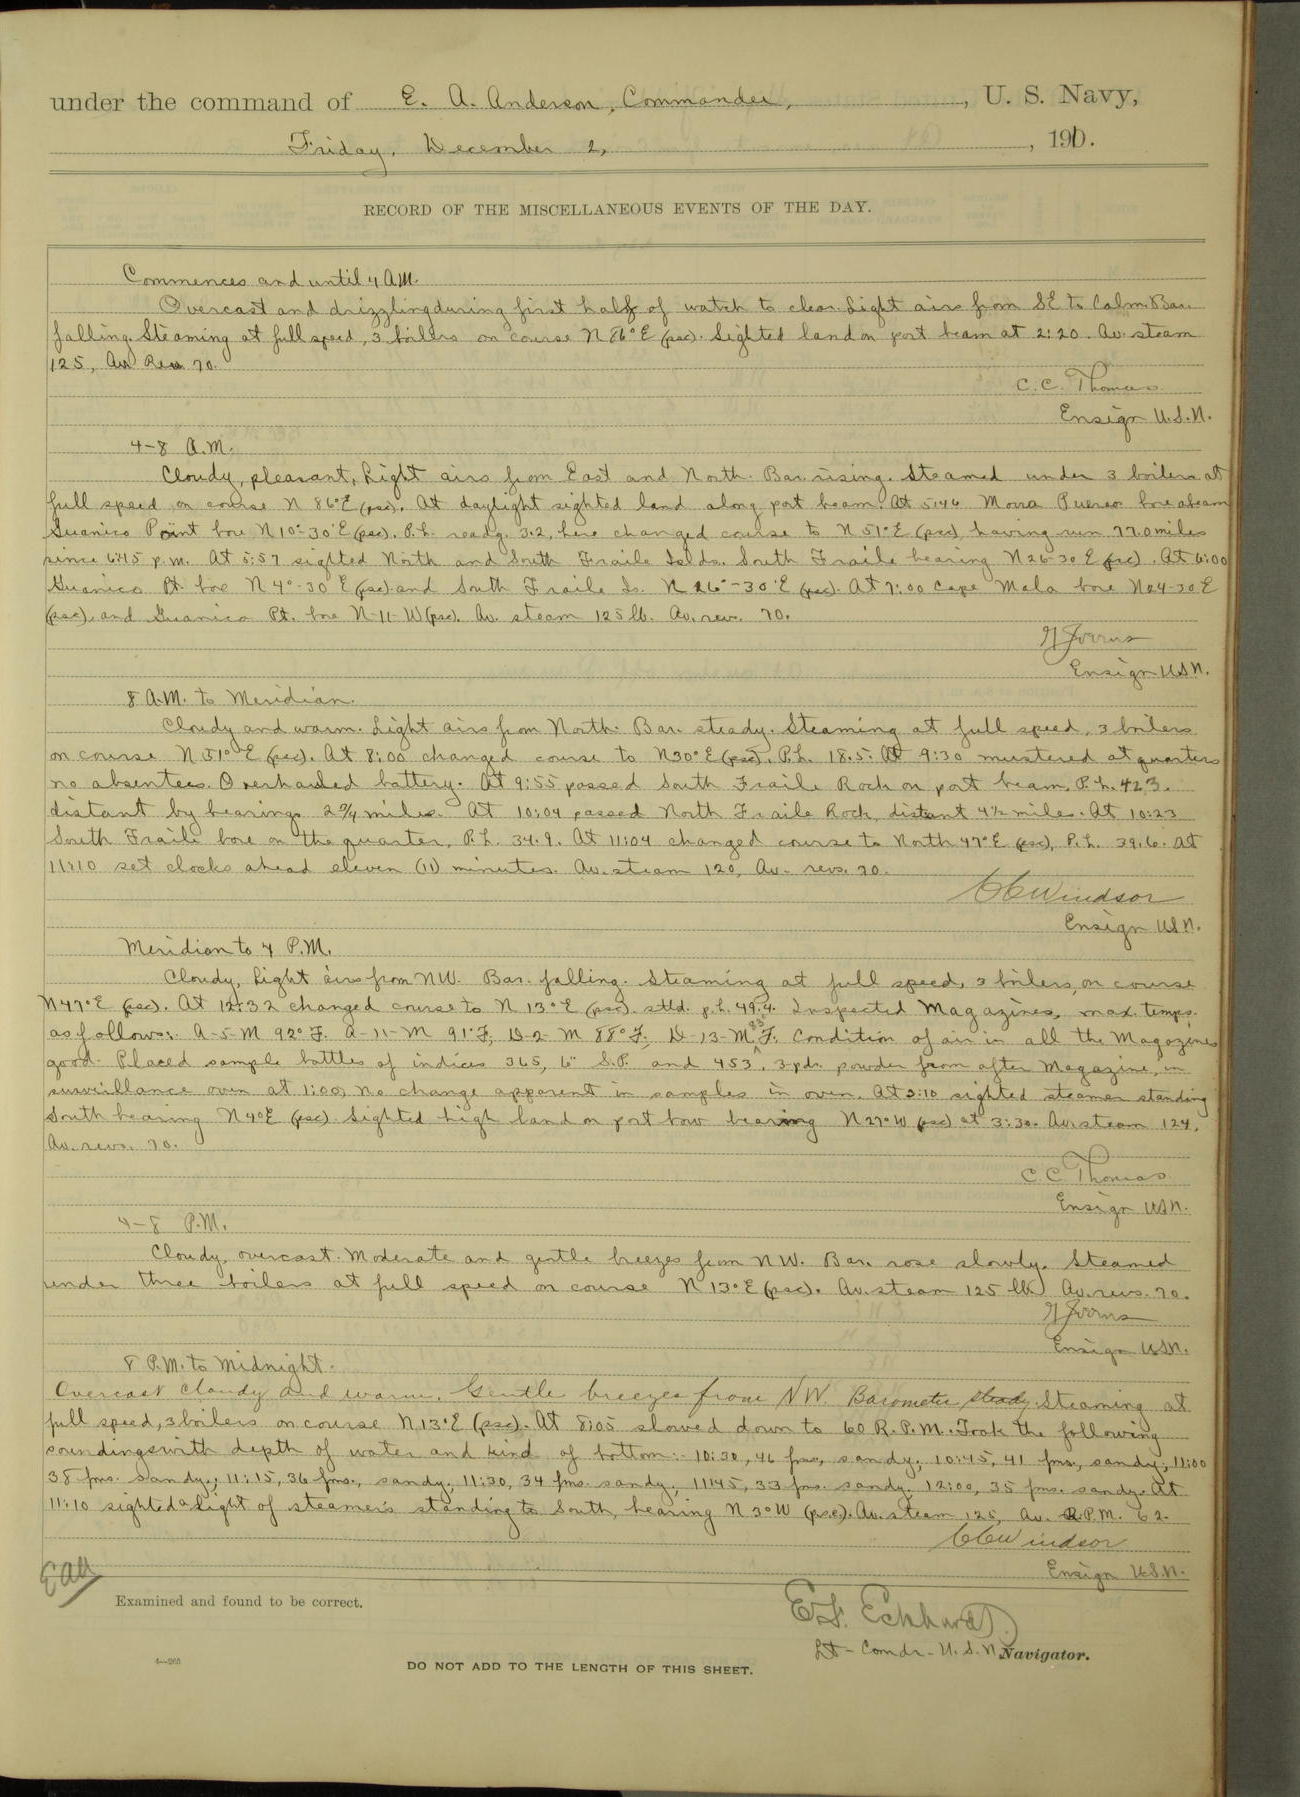 under the command of E. A. Anderson, Commander, , U. S. Navy,
Friday, December 2, , 1910.
RECORD OF THE MISCELLANEOUS EVENTS OF THE DAY.
Commences and until 4 A.M.
Overcast and drizzling during first half of watch to clear. Light airs from SE to Calm. Bar.
falling. Steaming at full speed, 3 boilers on course N 86° E (psc). Sighted land on port beam at 2:20. Av. steam
125, Av. Revs 70.
C. C. Thomas
Ensign U.S.N.
4-8 A.M.
Cloudy, pleasant, Light airs from East and North. Bar. rising. Steamed under 3 boilers at
full speed on course N 86° E (psc). At daylight sighted land along port beam. At 5:46 Morra Puerco bore abeam
Guanico Point bore N 10°-30' E (psc). P.L. readg. 3.2, here changed course to N 51° E (psc) having run 77.0 miles
since 6:45 p.m. At 5:57 sighted North and South Fraile Islds. South Fraile bearing N 26-30 E (psc). At 6:00
Guanico Pt. bore N 4°-30' E (psc) and South Fraile Is. N 26°-30' E (psc). At 7:00 Cape Mala bore N 24-30 E
(psc), and Guanico Pt. bore N-11-W (psc). Av. steam 125 lb. Av. revs. 70.
Ensign U.S.N.
8 A.M. to Meridian.
Cloudy and warm. Light airs from North. Bar. steady. Steaming at full speed, 3 boilers
on course N 51° E (psc). At 8:00 changed course to N 30° E (psc). P.L. 18.5. At 9:30 mustered at quarters
no absentees. Overhauled battery. At 9:55 passed South Fraile Rock on port beam, P.L. 42.3.
distant by bearings 2 3/4 miles. At 10:04 passed North Fraile Rock, distant 4 1/2 miles. At 10:23
South Fraile bore on the quarter, P.L. 34.9. At 11:04 changed course to North 47° E (psc), P.L. 39.6. At
11:10 set clocks ahead eleven (11) minutes. Av. steam 120, Av. revs. 70.
CC Windsor
Ensign U.S.N.
Meridian to 4 P.M.
Cloudy, Light airs from NW. Bar. falling. Steaming at full speed, 3 boilers, on course
N 47° E (psc). At 12:32 changed course to N 13° E (psc). stld. p.l. 49.4. Inspected Magazines, max. temps.
as follows:. A-5-M 92° F. A-11-M 91° F, D-2-M 88° F, D-13-M 93° F. Condition of air in all the Magazines
good. Placed sample bottles of indices 365, 6" S.P. and 453, 3 pdr. powder from after Magazine, in
surveillance oven at 1:00, no change apparent in samples in oven. At 3:10 sighted steamer standing
South bearing N 4° E (psc) Sighted high land on port bow bearing N 27° W (psc) at 3:30. Av. steam 124,
Av. revs. 70.
C. C. Thomas
Ensign U.S.N.
4-8 P.M.
Cloudy, overcast. Moderate and gentle breezes from NW. Bar. rose slowly. Steamed
under three boilers at full speed on course N 13° E (psc). Av. steam 125 lb. Av. revs. 70.
Ensign U.S.N.
8 P.M. to Midnight.
Overcast cloudy and warm. Gentle breezes from NW. Barometer steady. Steaming at
full speed, 3 boilers on course N 13° E (psc). At 8:05 slowed down to 60 R.P.M. Took the following
soundings with depth of water and kind of bottom:- 10:30, 46 fms, sandy; 10:45, 41 fms, sandy; 11:00
38 fms. sandy; 11:15, 36 fms., sandy; 11:30, 34 fms. sandy; 11:45, 33 fms. sandy; 12:00, 35 fms. sandy. At
11:10 sighted Light of steamers standing to South, bearing N 3° W (psc). Av. steam 125, Av. R.P.M. 62.
CC Windsor
Ensign U.S.N.
EAA
Examined and found to be correct.
E. F. Eckhardt
Lt-Comdr. U.S.N. Navigator.
DO NOT ADD TO THE LENGTH OF THIS SHEET.